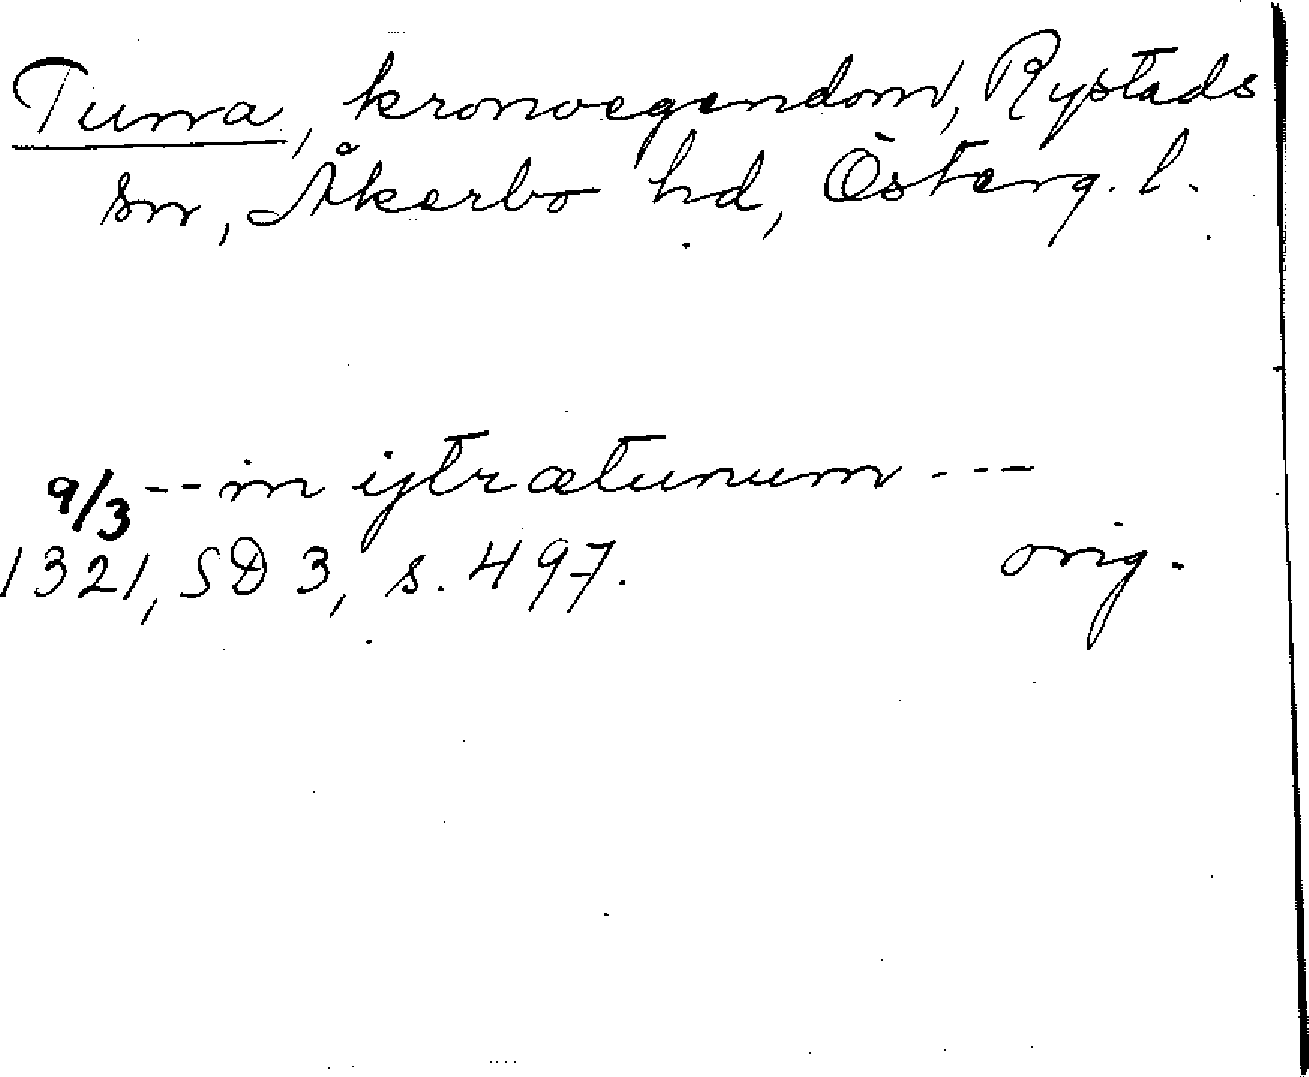 Tuna, kronoegendom, Rystads
sn, Åkerbo hd, Österg. l.
9/3 -- in ijtrætunum ---
1321, SD 3, s. 497. orig.